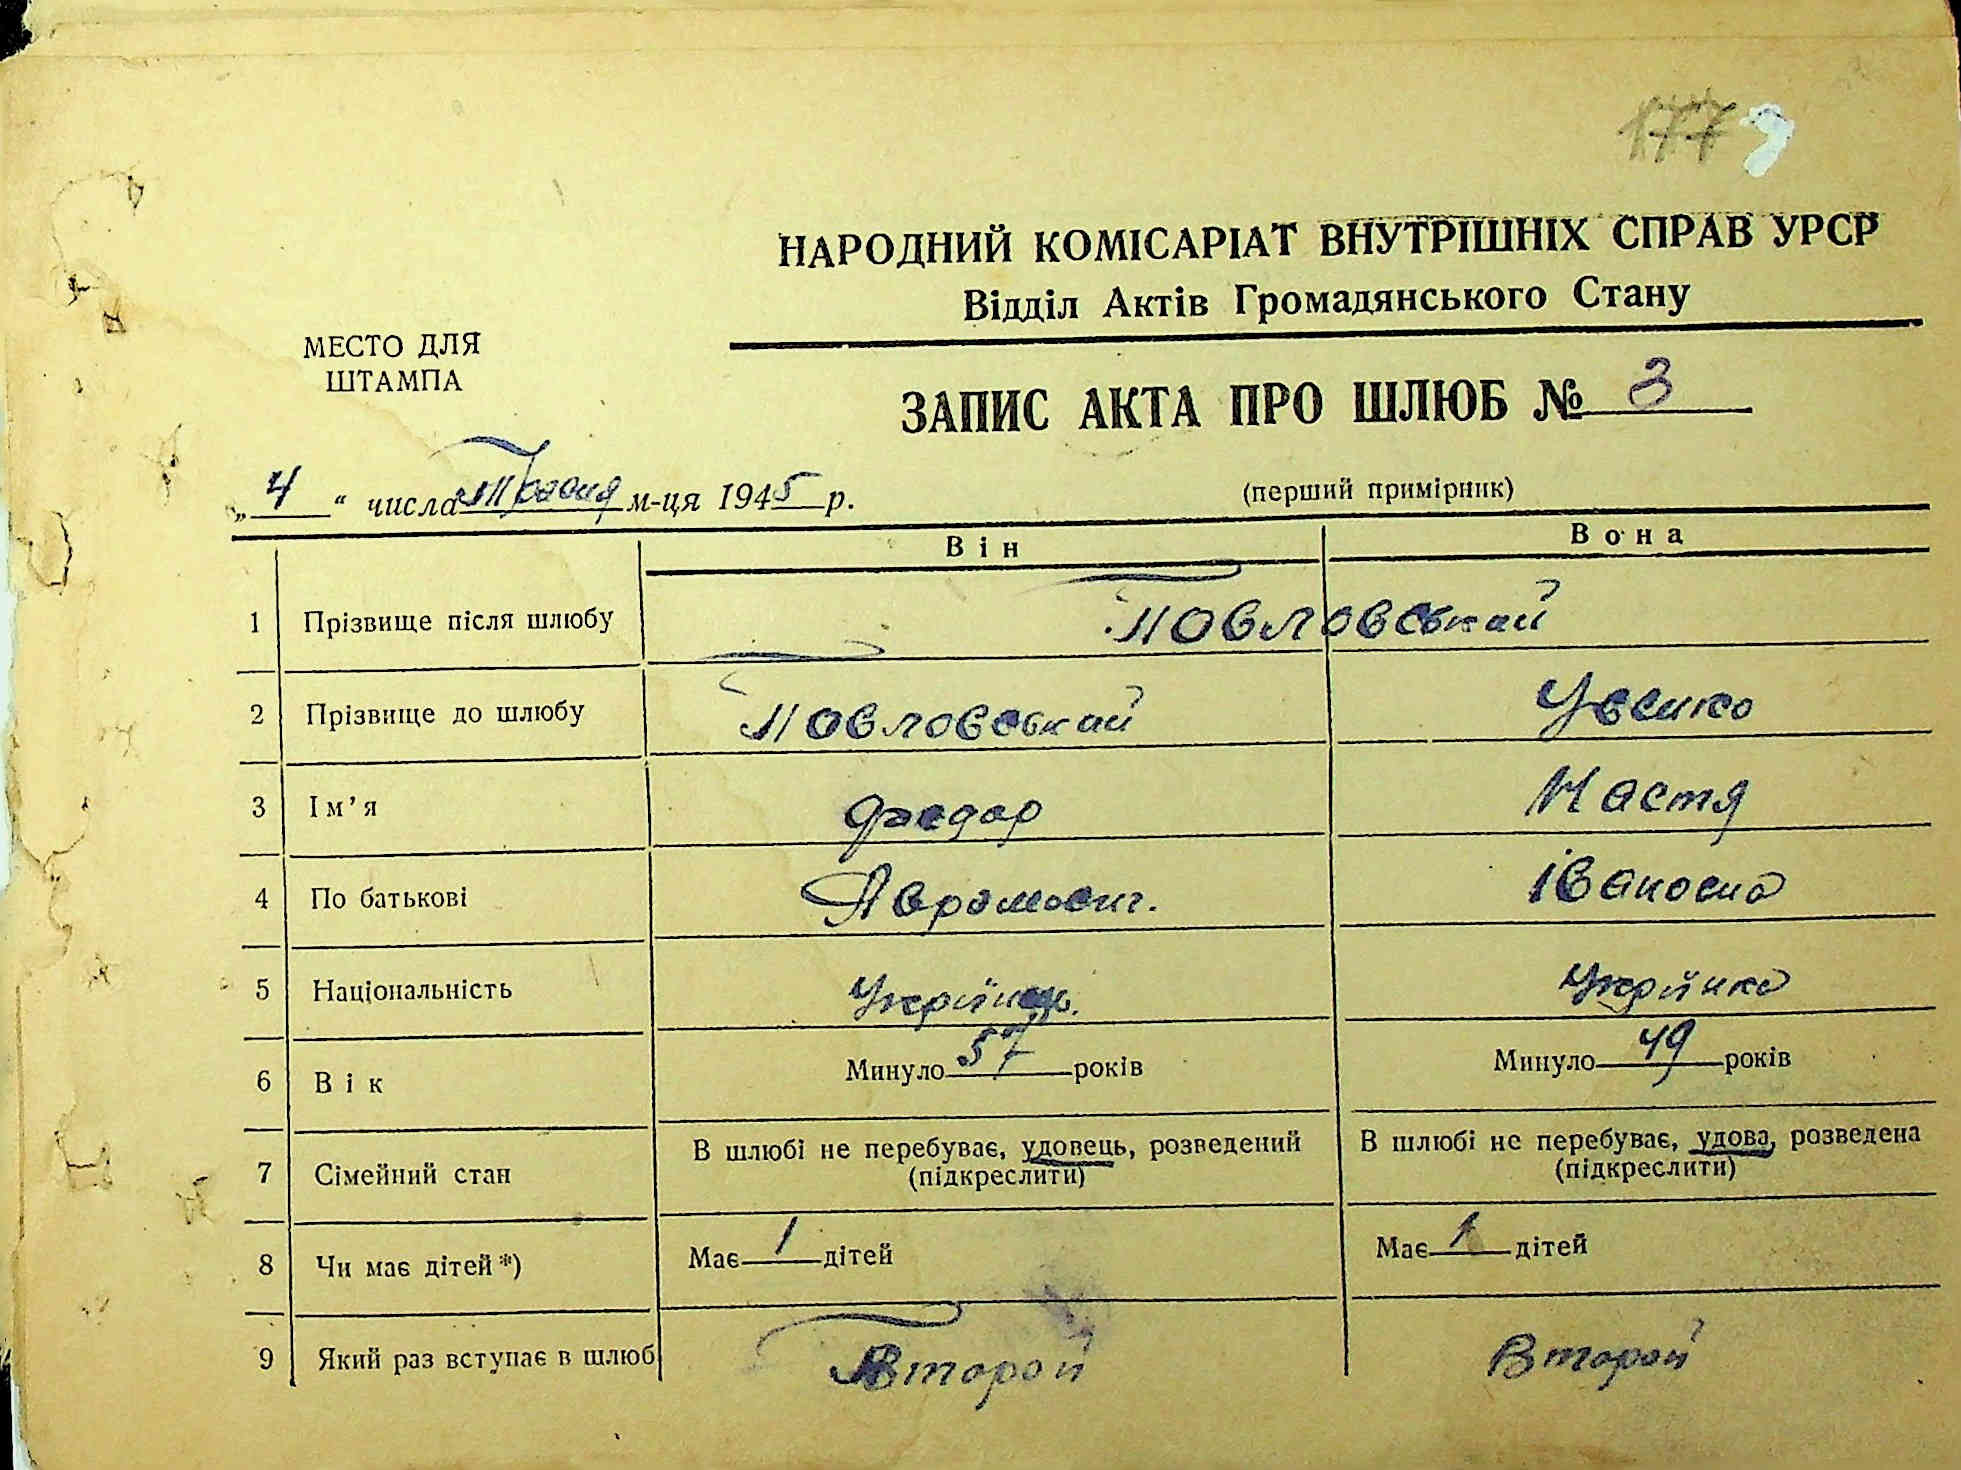 177
НАРОДНИЙ КОМІСАРІАТ ВНУТРІШНІХ СПРАВ УРСР
Відділ Актів Громадянського Стану
МЕСТО ДЛЯ
ШТАМПА
ЗАПИС АКТА ПРО ШЛЮБ № 3
„4“ числа Травня м-ця 1945 р.
(перший примірник)
Він Вона
1 Прізвище після шлюбу Повловський
2 Прізвище до шлюбу Повловський
3 Ім’я Федор Настя
4 По батькові Аврамович. Івановна
5 Національність Украйнец. Украйнка
6 Вік Минуло 57 років Минуло 49 років
7 Сімейний стан В шлюбі не перебуває, удовець, розведений (підкреслити) В шлюбі не перебуває, удова, розведена (підкреслити)
8 Чи має дітей*) Має 1 дітей Має 1 дітей
9 Який раз вступає в шлюб Второй Второй